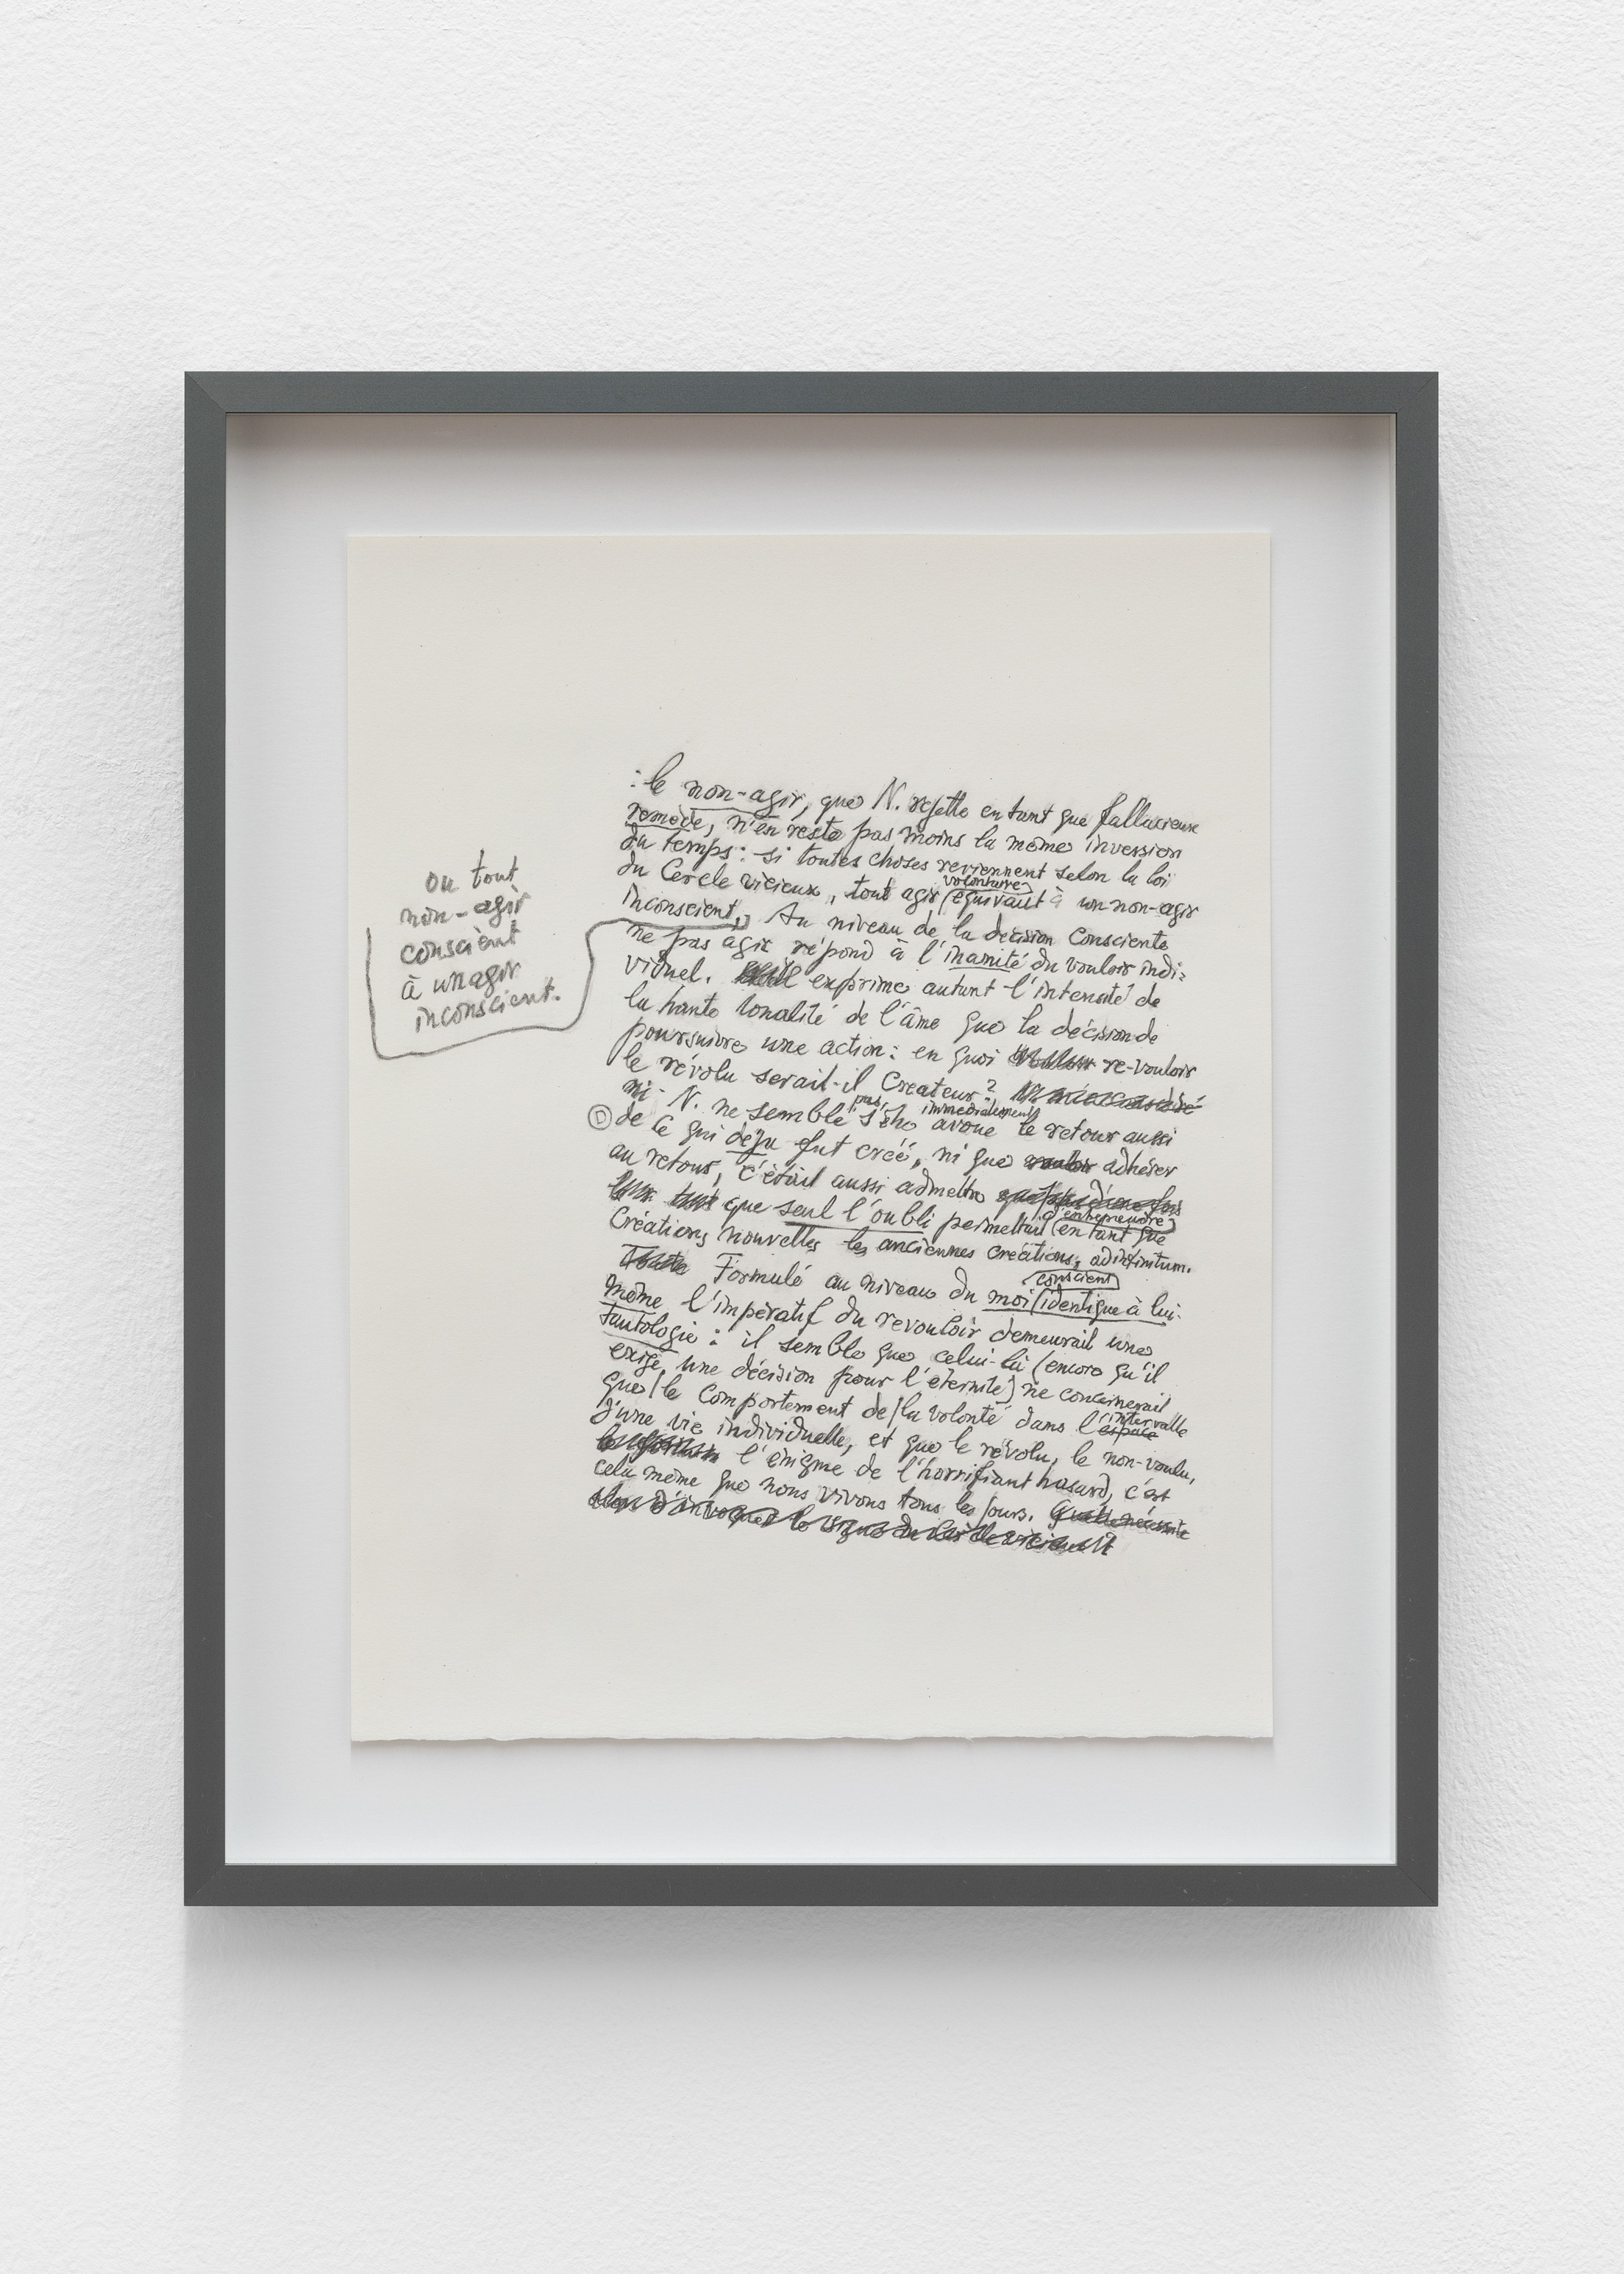 : le non-agir, que N. rejette en tant que fallacieux
remède, n'en reste pas moins la même inversion
du temps : si toutes choses reviennent selon la loi
volontaire
du Cercle vicieux, tout agir équivaut à un non-agir
inconscient, Au niveau de la décision consciente
ou tout
non-agir
conscient
à un agir
inconscient.
ne pas agir répond à l'inanité du vouloir indi-
viduel. exprime autant l'intensité de
la haute tonalité de l'âme que la décision de
poursuivre une action : en quoi re-vouloir
le révolu serait-il Createur ?
ni N. ne semble pas s'être immédiatement avoué le retour aussi
D de ce qui déjà fut créé, ni que vouloir adhérer
au retour, c'était aussi admettre
que seul l'oubli permettait d'entreprendre en tant que
Créations nouvelles les anciennes créations, ad infinitum.
Formulé au niveau du moi conscient identique à lui-
même l'impératif du revouloir demeurait une
tautologie : il semble que celui-là (encore qu'il
exige une décision pour l'éternité) ne concernerait
que le comportement de la volonté dans l'espace intervalle
d'une vie individuelle, et que le révolu, le non-voulu,
l'énigme de l'horrifiant hasard, c'est
cela même que nous vivons tous les jours.